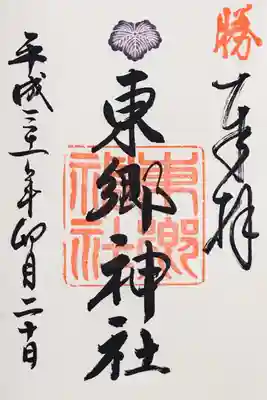 勝
奉拝
東郷神社
東郷神社
平成三十一年卯月二十日